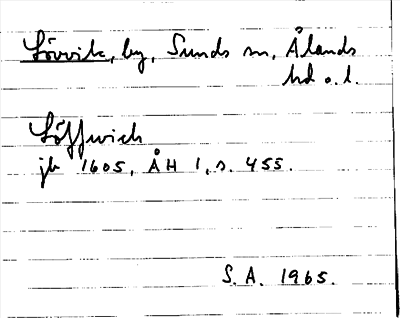 Lövvik, by, Sunds sn, Ålands
hd o. l.
Löffwich
jb 1605, ÅH 1, s. 455.
S. A. 1965.